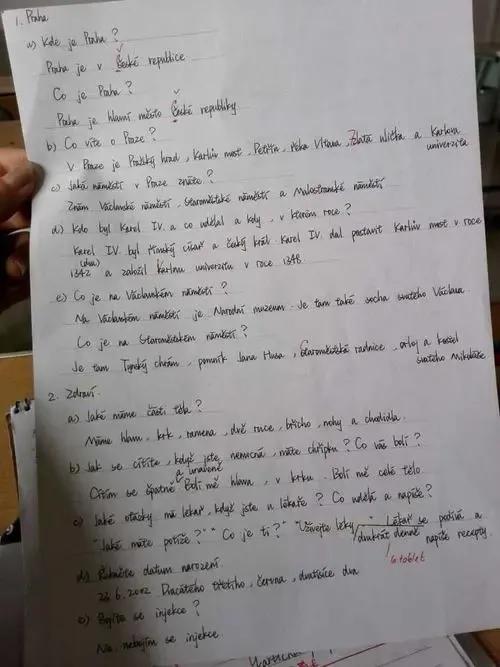 1. Praha
a) Kde je Praha ?
Praha je v České republice
Co je Praha ?
Praha je hlavní město České republiky
b) Co víte o Praze ?
V Praze je Pražský hrad, Karlův most, Petřín, řeka Vltava, Zlatá ulička a Karlova
univerzita
c) Jaká náměstí v Praze znáte ?
Znám Václavské náměstí, Staroměstské náměstí a Malostranské náměstí
d) Kdo byl Karel IV. a co udělal a kdy, v kterém roce ?
Karel IV. byl římský císař a český král. Karel IV. dal postavit Karlův most v roce
1342 a založil Karlovu univerzitu v roce 1348
e) Co je na Václavském náměstí ?
Na Václavském náměstí je Národní muzeum. Je tam také socha svatého Václava
Co je na Staroměstském náměstí ?
Je tam Týnský chrám, pomník Jana Husa, Staroměstská radnice, orloj a kostel
svatého Mikuláše
2. Zdraví
a) Jaké máme části těla ?
Máme hlavu, krk, ramena, dvě ruce, břicho, nohy a chodidla.
b) Jak se cítíte, když jste nemocná, máte chřipku ? Co vás bolí ?
a unaveně
Cítím se špatně Bolí mě hlava, v krku. Bolí mě celé tělo
c) Jaké otázky má lékař, když jste u lékaře ? Co udělá a napíše ?
"Jaké máte potíže ?" "Co je ti ?" "Užívejte léky " Lékař se podívá a
dvakrát denně napíše recepty.
6 tablet
d) datum narození.
22.6.2002 Dvacátého třetího, června, dvatisíce dva
e) Bojíte se injekce ?
Ne. nebojím se injekce.